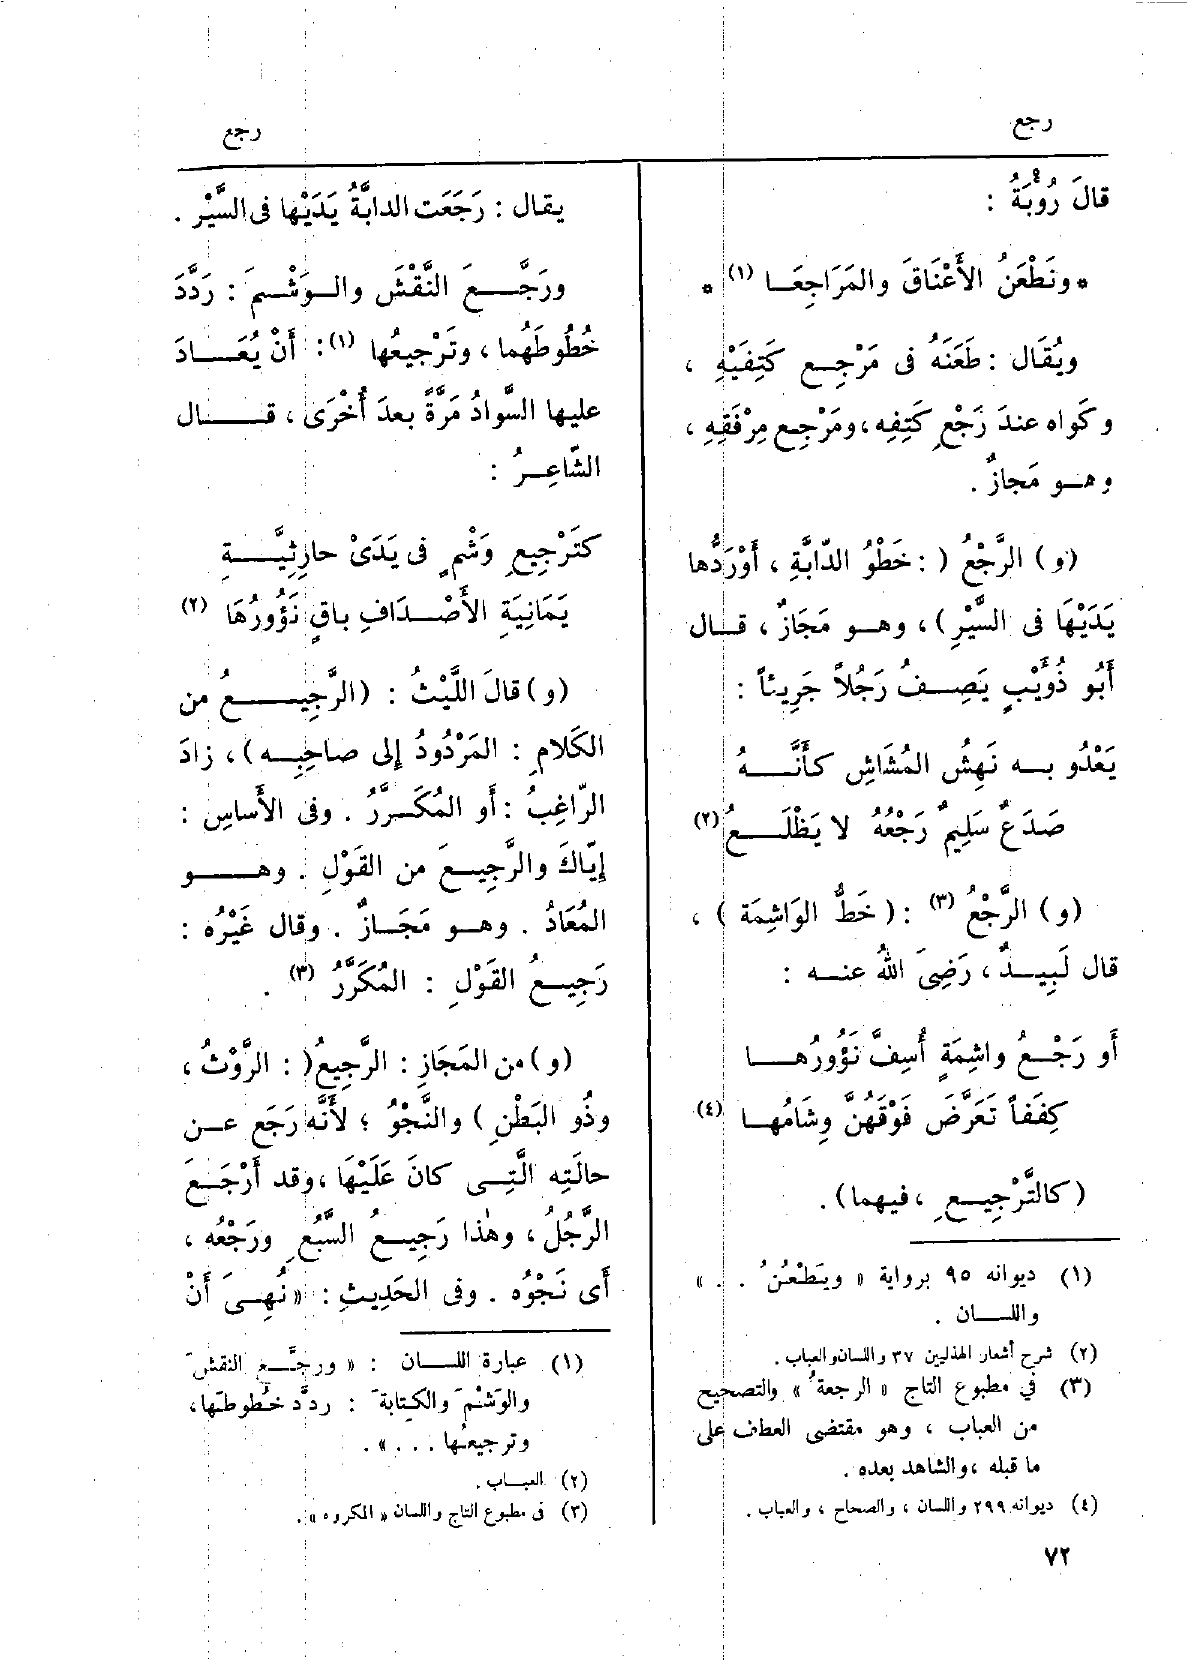 رجع
قالَ رُؤبَةُ :
* ونَطْعَنُ الأَعْنَاقَ والمَرَاجِعَا (١) *
ويُقَال : طَعَنَهُ فى مَرْجِع كَتِفَيْهِ ،
وكواه عندَ رَجْعِ كَتِفِه، ومَرْجِع مِرْفَقِهِ ،
وهو مَجازٌ .
(و) الرَّجْعُ ( : خَطْوُ الدّابَّةِ ، أَوْ رَدُّها
يَدَيْهَا فى السَّيْرِ) ، وهو مَجَازٌ ، قال
أَبُو ذُؤَيْبٍ يَصِفُ رَجُلاً جَرِيئاً :
يَعْدُو به نَهِشُ المُشَاشِ كأَنَّهُ
صَدَعٌ سَلِيمٌ رَجْعُهُ لا يَظْلَعُ (٢)
(و) الرَّجْعُ (٣) : ( خَطُّ الوَاشِمَة ) ،
قال لَبِيدٌ ، رَضِىَ اللهُ عنه :
أَو رَجْعُ واشِمَةٍ أُسِفَّ نَؤُورُها
كِفَفاً تَعَرَّضَ فَوْقَهُنَّ وِشَامُها (٤)
(كالتَّرْجِيعِ ، فيهما) .
(١) ديوانه ٩٥ برواية « ويَطْعُنُ . . »
واللسان .
(٢) شرح أشعار الهذليين ٣٧ واللسان والعباب .
(٣) في مطبوع التاج « الرجعةُ » والتصحيح
من العباب ، وهو مقتضى العطف على
ما قبله ، والشاهد بعده .
(٤) ديوانه ٢٩٩ واللسان ، والصحاح ، والعباب .
٧٢
رجع
يقال : رَجَعَت الدابَّةُ يَدَيْها فى السَّيْرِ .
ورَجَّعَ النَّقْشَ والوَشْمَ : رَدَّدَ
خُطُوطَهُما ، وتَرْجِيعُها (١) : أَنْ يُعَادَ
عليها السَّوادُ مَرَّةً بعدَ أُخْرَى ، قال
الشّاعِرُ :
كتَرْجِيعِ وَشْمٍ فى يَدَىْ حارِثِيَّةٍ
يَمَانِيَةِ الأَصْدَافِ باقٍ نَؤُورُهَا (٢)
(و) قالَ اللَّيْثُ : (الرَّجِيعُ من
الكَلامِ : المَرْدُودُ إلى صاحِبِه) ، زادَ
الرّاغِبُ : أَو المُكَرَّرُ . وفى الأَساسِ :
إِيّاكَ والرَّجِيعَ من القَوْلِ . وهو
المُعَادُ . وهو مَجَازٌ . وقال غَيْرُه :
رَجِيعُ القَوْلِ : المُكَرَّرُ (٣) .
(و) من المَجَازِ : الرَّجِيعُ( : الرَّوْثُ ،
وذُو البَطْنِ ) والنَّجْوُ ؛ لأَنَّه رَجَع عن
حالَتِه الَّتِى كانَ عَلَيْهَا ، وقد أَرْجَعَ
الرَّجُلُ ، وهٰذا رَجِيعُ السَّبُعِ ورَجْعُه ،
أَى نَجْوُه . وفى الحَدِيثِ : « نُهِىَ أَنْ
(١) عبارة اللسان : « ورجَّع النقشَ
والوَشْمَ والكِتابةَ : ردَّد خُطوطَها ،
وترجيعُها . . . » .
(٢) العباب .
(٣) فى مطبوع التاج واللسان « المكروه » .